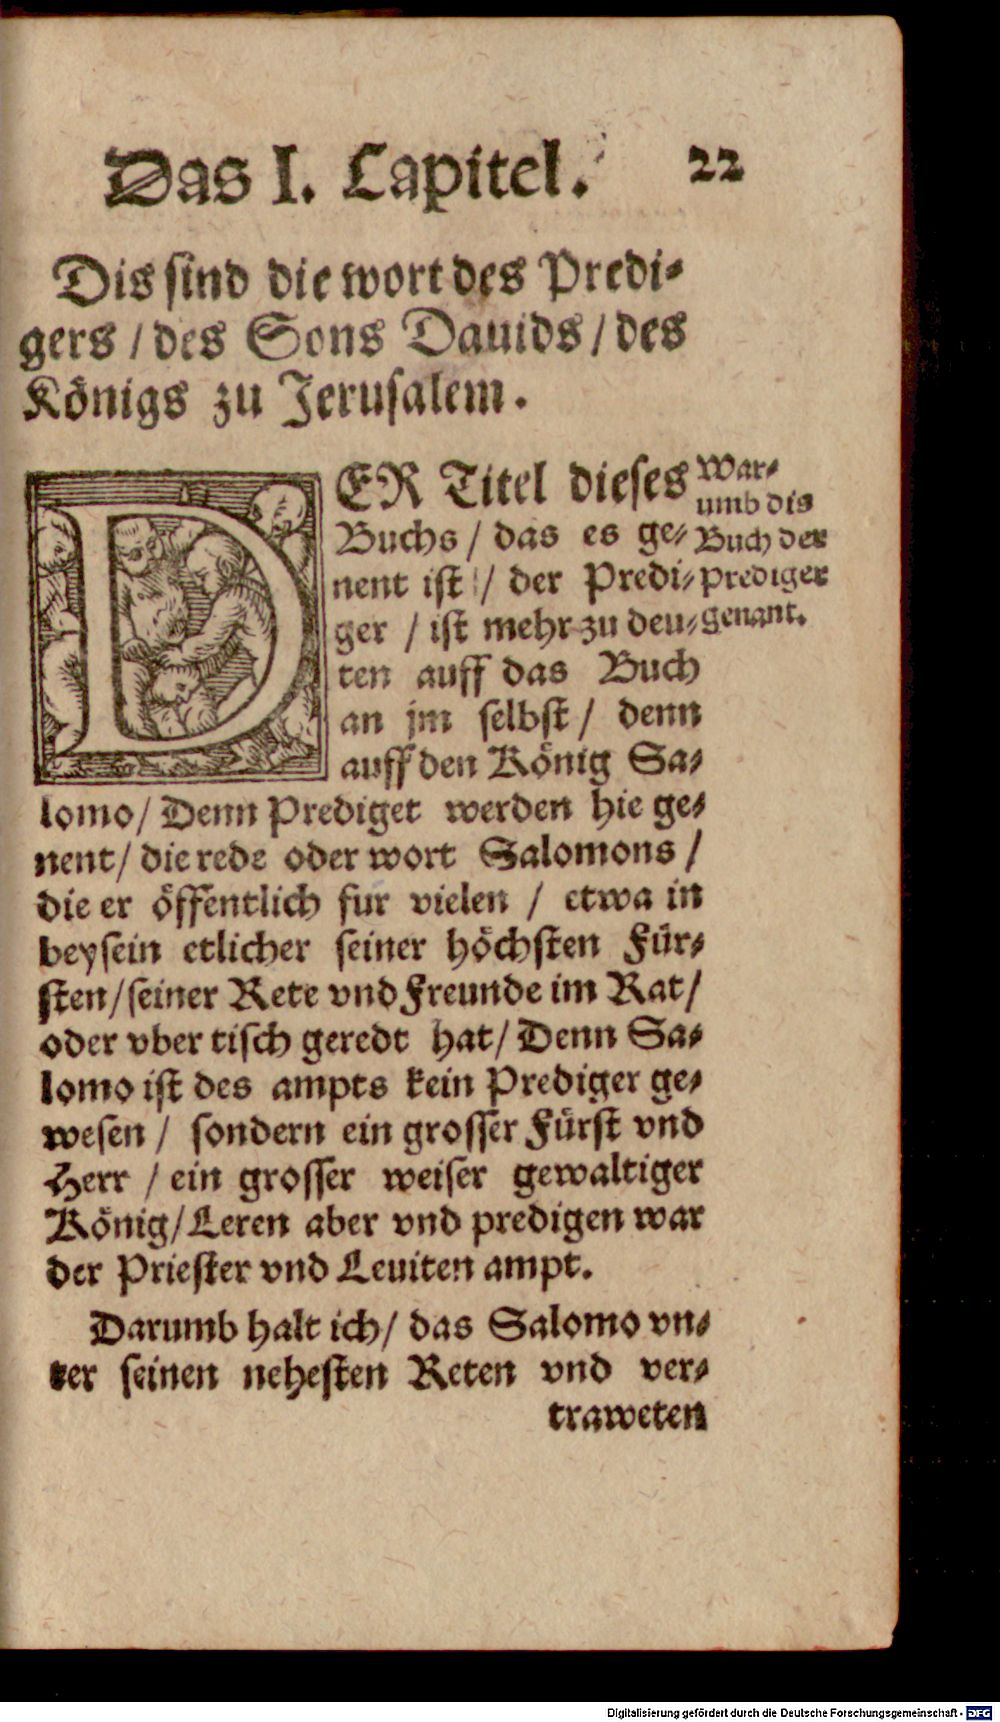 Das I. Capitel. 22
Dis sind die wort des Predi-
gers / des Sons Dauids / des
Königs zu Jerusalem.
DER Titel dieses
Buchs / das es ge-
nent ist / der Predi-
ger / ist mehr zu deu-
ten auff das Buch
an jm selbst / denn
auff den König Sa-
lomo / Denn Prediget werden hie ge-
nent / die rede oder wort Salomons /
die er öffentlich fur vielen / etwa in
beysein etlicher seiner höchsten Für-
sten / seiner Rete vnd Freunde im Rat /
oder vber tisch geredt hat / Denn Sa-
lomo ist des ampts kein Prediger ge-
wesen / sondern ein grosser Fürst vnd
Herr / ein grosser weiser gewaltiger
König / Leren aber vnd predigen war
der Priester vnd Leuiten ampt.
Darumb halt ich / das Salomo vn-
ter seinen nehesten Reten vnd ver-
traweten
War-
umb dis
Buch der
Prediger
genant.
Digitalisierung gefördert durch die Deutsche Forschungsgemeinschaft - DFG